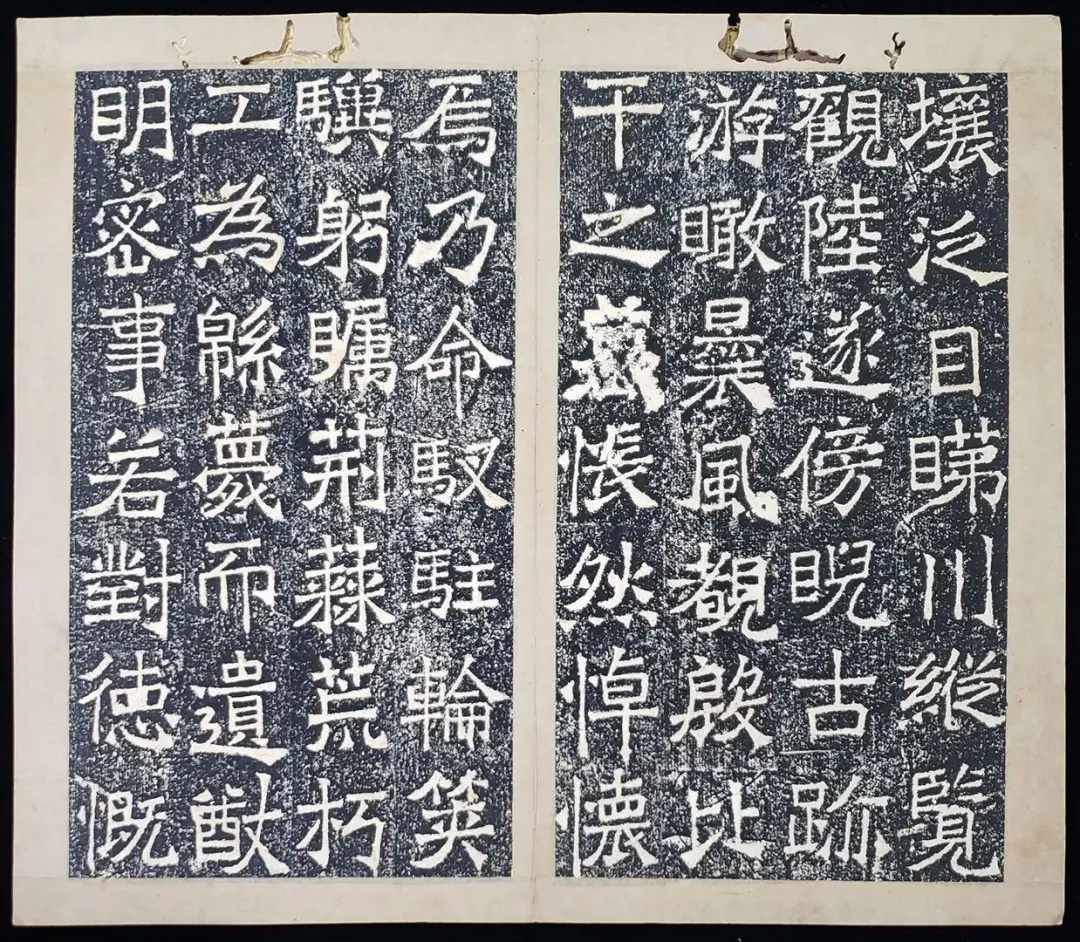 壤泛目睇川縱覽
觀陸遂傍睨古跡
游瞰曩風覩殷比
干之墓悵然悼懷
焉乃命馭駐輪筴
驥躬矚荊蕀荒朽
工為緜薎而遺猷
明密事若對徳慨